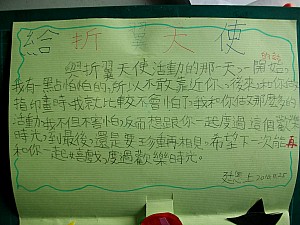 給折翼天使
的話
與折翼天使活動的那一天,一開始,
我有一點怕怕的,所以不敢靠近你、後來和你的
指印畫時我就比較不會怕了,我和你做那麼多的
活動我不但不會怕,反而想跟你一起度過這個歡樂
時光,到最後,還是要珍重再相見,希望下一次能再
和你一起嬉戲,度過歡樂時光。
上2010.11.25